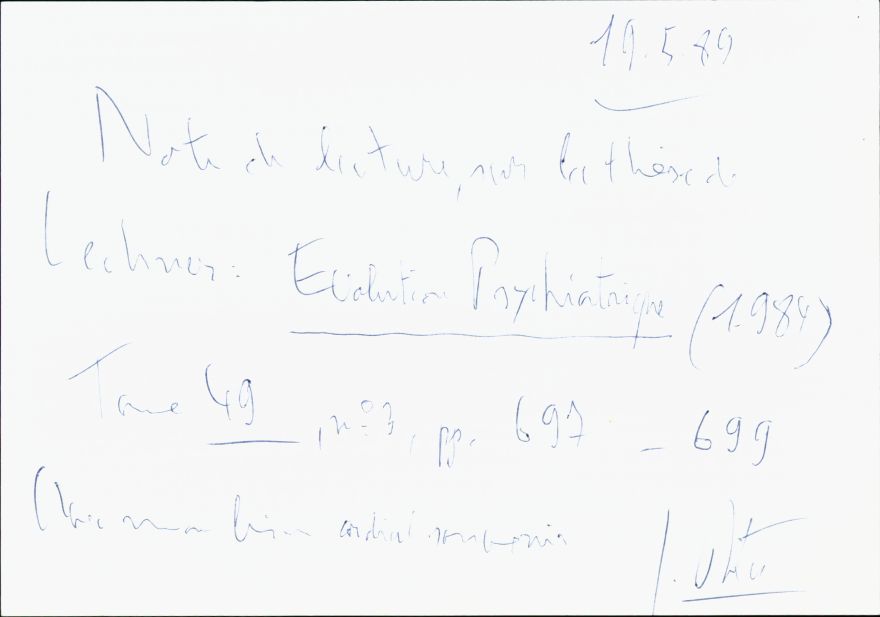 19.5.89
Note de lecture, sur la thèse de
Lechner : Evolution Psychiatrique (1984)
Tome 49, n° 3, pp. 697 - 699
Avec mon bien cordial souvenir
J.